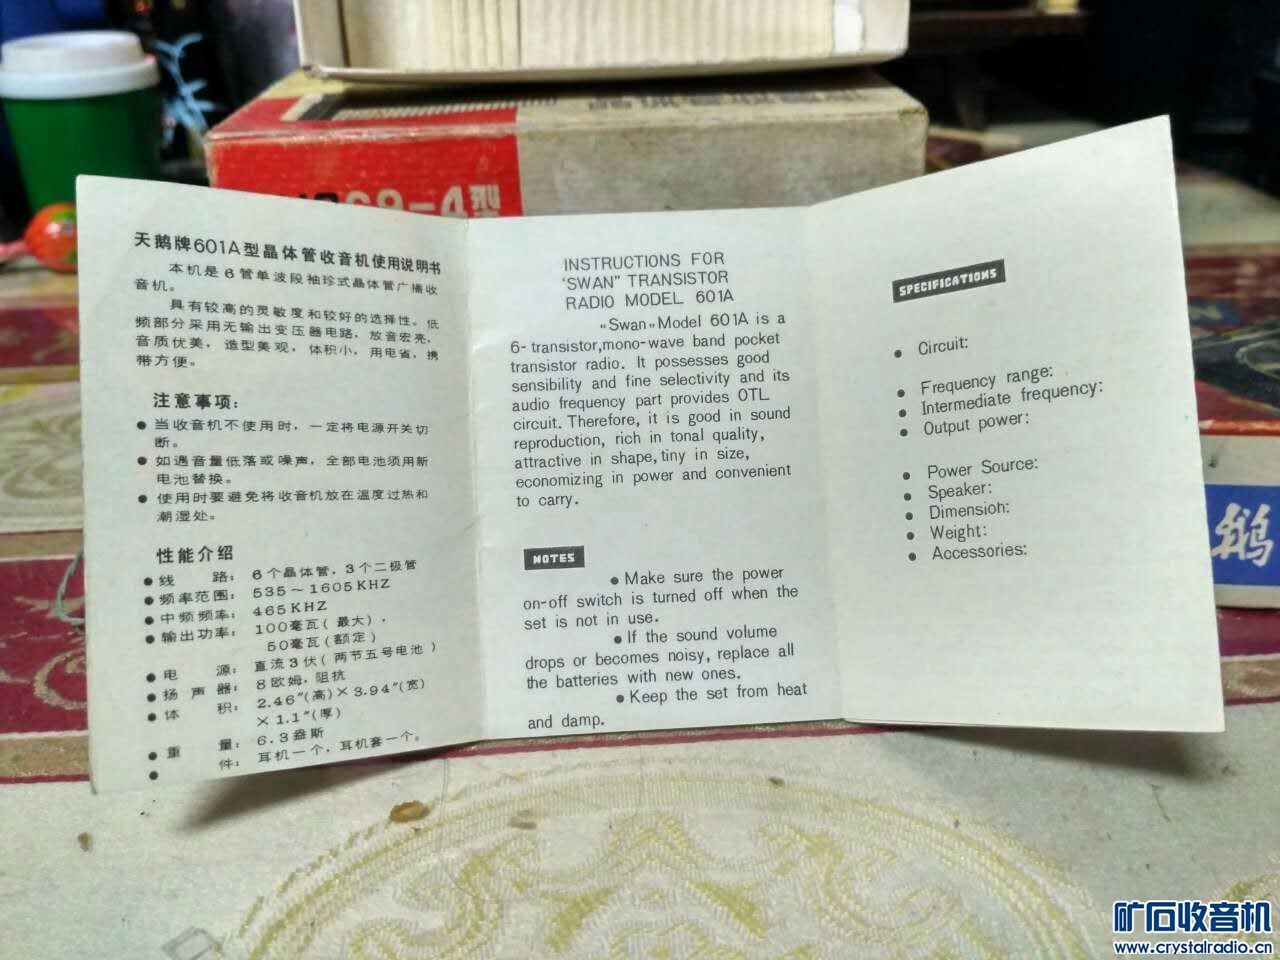 天鹅牌601A型晶体管收音机使用说明书
本机是6管单波段袖珍式晶体管广播收
音机。
具有较高的灵敏度和较好的选择性。低
频部分采用无输出变压器电路，放音宏亮，
音质优美，造型美观，体积小，用电省，携
带方便。
注意事项：
● 当收音机不使用时，一定将电源开关切
断。
● 如遇音量低落或噪声，全部电池须用新
电池替换。
● 使用时要避免将收音机放在温度过热和
潮湿处。
性能介绍
● 线 路： 6个晶体管，3个二极管
● 频率范围： 535～1605KHZ
● 中频频率： 465KHZ
● 输出功率： 100毫瓦(最大)，
50毫瓦(额定)
● 电 源： 直流3伏(两节五号电池)
● 扬声器： 8欧姆，阻抗
● 体 积： 2.46″(高)×3.94″(宽)
×1.1″(厚)
● 重 量： 6.3盎斯
● 件： 耳机一个，耳机套一个。
INSTRUCTIONS FOR
"SWAN" TRANSISTOR
RADIO MODEL 601A
«Swan» Model 601A is a
6-transistor,mono-wave band pocket
transistor radio. It possesses good
sensibility and fine selectivity and its
audio frequency part provides OTL
circuit. Therefore, it is good in sound
reproduction, rich in tonal quality,
attractive in shape, tiny in size,
economizing in power and convenient
to carry.
NOTES
● Make sure the power
on-off switch is turned off when the
set is not in use.
● If the sound volume
drops or becomes noisy, replace all
the batteries with new ones.
● Keep the set from heat
and damp.
SPECIFICATIONS
● Circuit:
● Frequency range:
● Intermediate frequency:
● Output power:
● Power Source:
● Speaker:
● Dimensioh:
● Weight:
● Accessories:
鹅
矿石收音机
www.crystalradio.cn